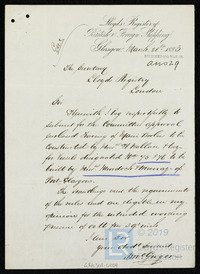 Lloyd's Register of
British & Foreign Shipping
Glasgow March 26th 1883
ans 29
The Secretary
Lloyds Registry
London
Sir
Herewith I beg respectfully to
submit for the Committees approval
enclosed tracing of Main boiler to be
constructed by Messrs Wallace Esq.
for vessel designated No 75 & 76 to be
built by Messrs Murdoch Murray of
Port Glasgow.
The scantlings the requirements
of the rules and are eligible in my
opinion for the intended working
pressure of lbs per sq inch
I am Sir
your obedt Servant
© 2019